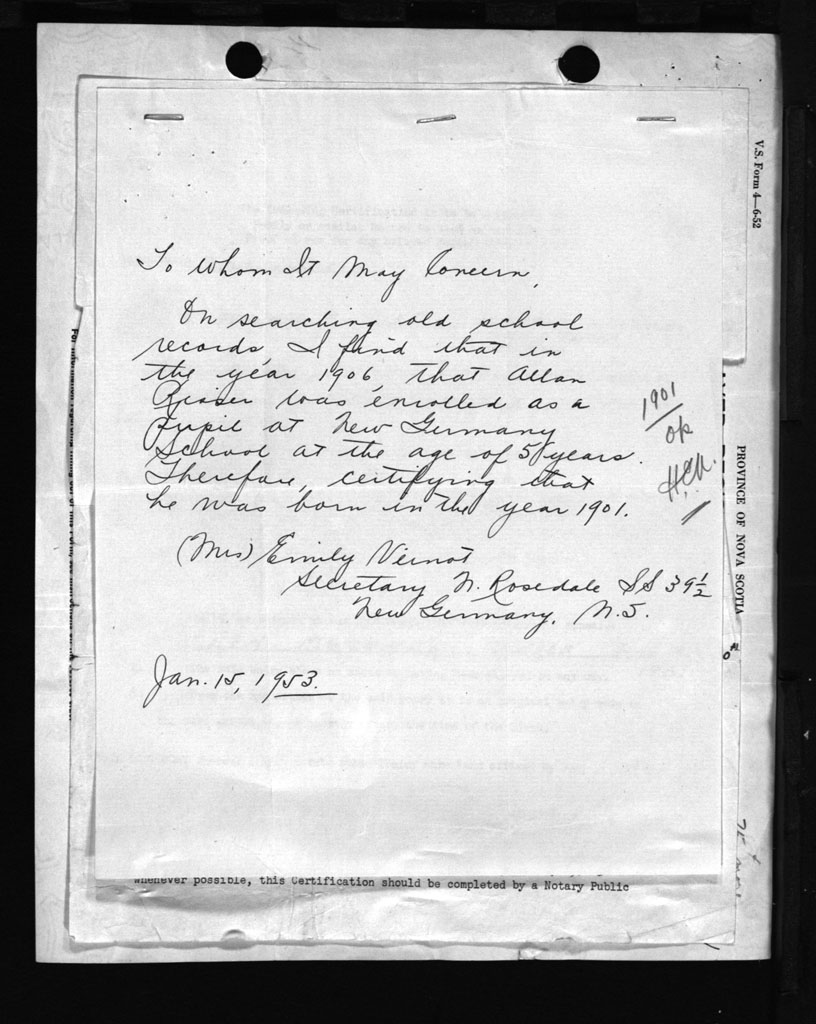 V.S. Form 4—6-52
To Whom It May Concern,
On searching old school
records, I find that in
the year 1906, that Allan
was enrolled as a
pupil at New Germany
School at the age of 5 years.
Therefore, certifying that
he was born in the year 1901.
(Mrs) Emily Veinot
Secretary N. Rosedale SS 39½
New Germany, N.S.
Jan. 15, 1953.
1901
OK
PROVINCE OF NOVA SCOTIA
whenever possible, this Certification should be completed by a Notary Public